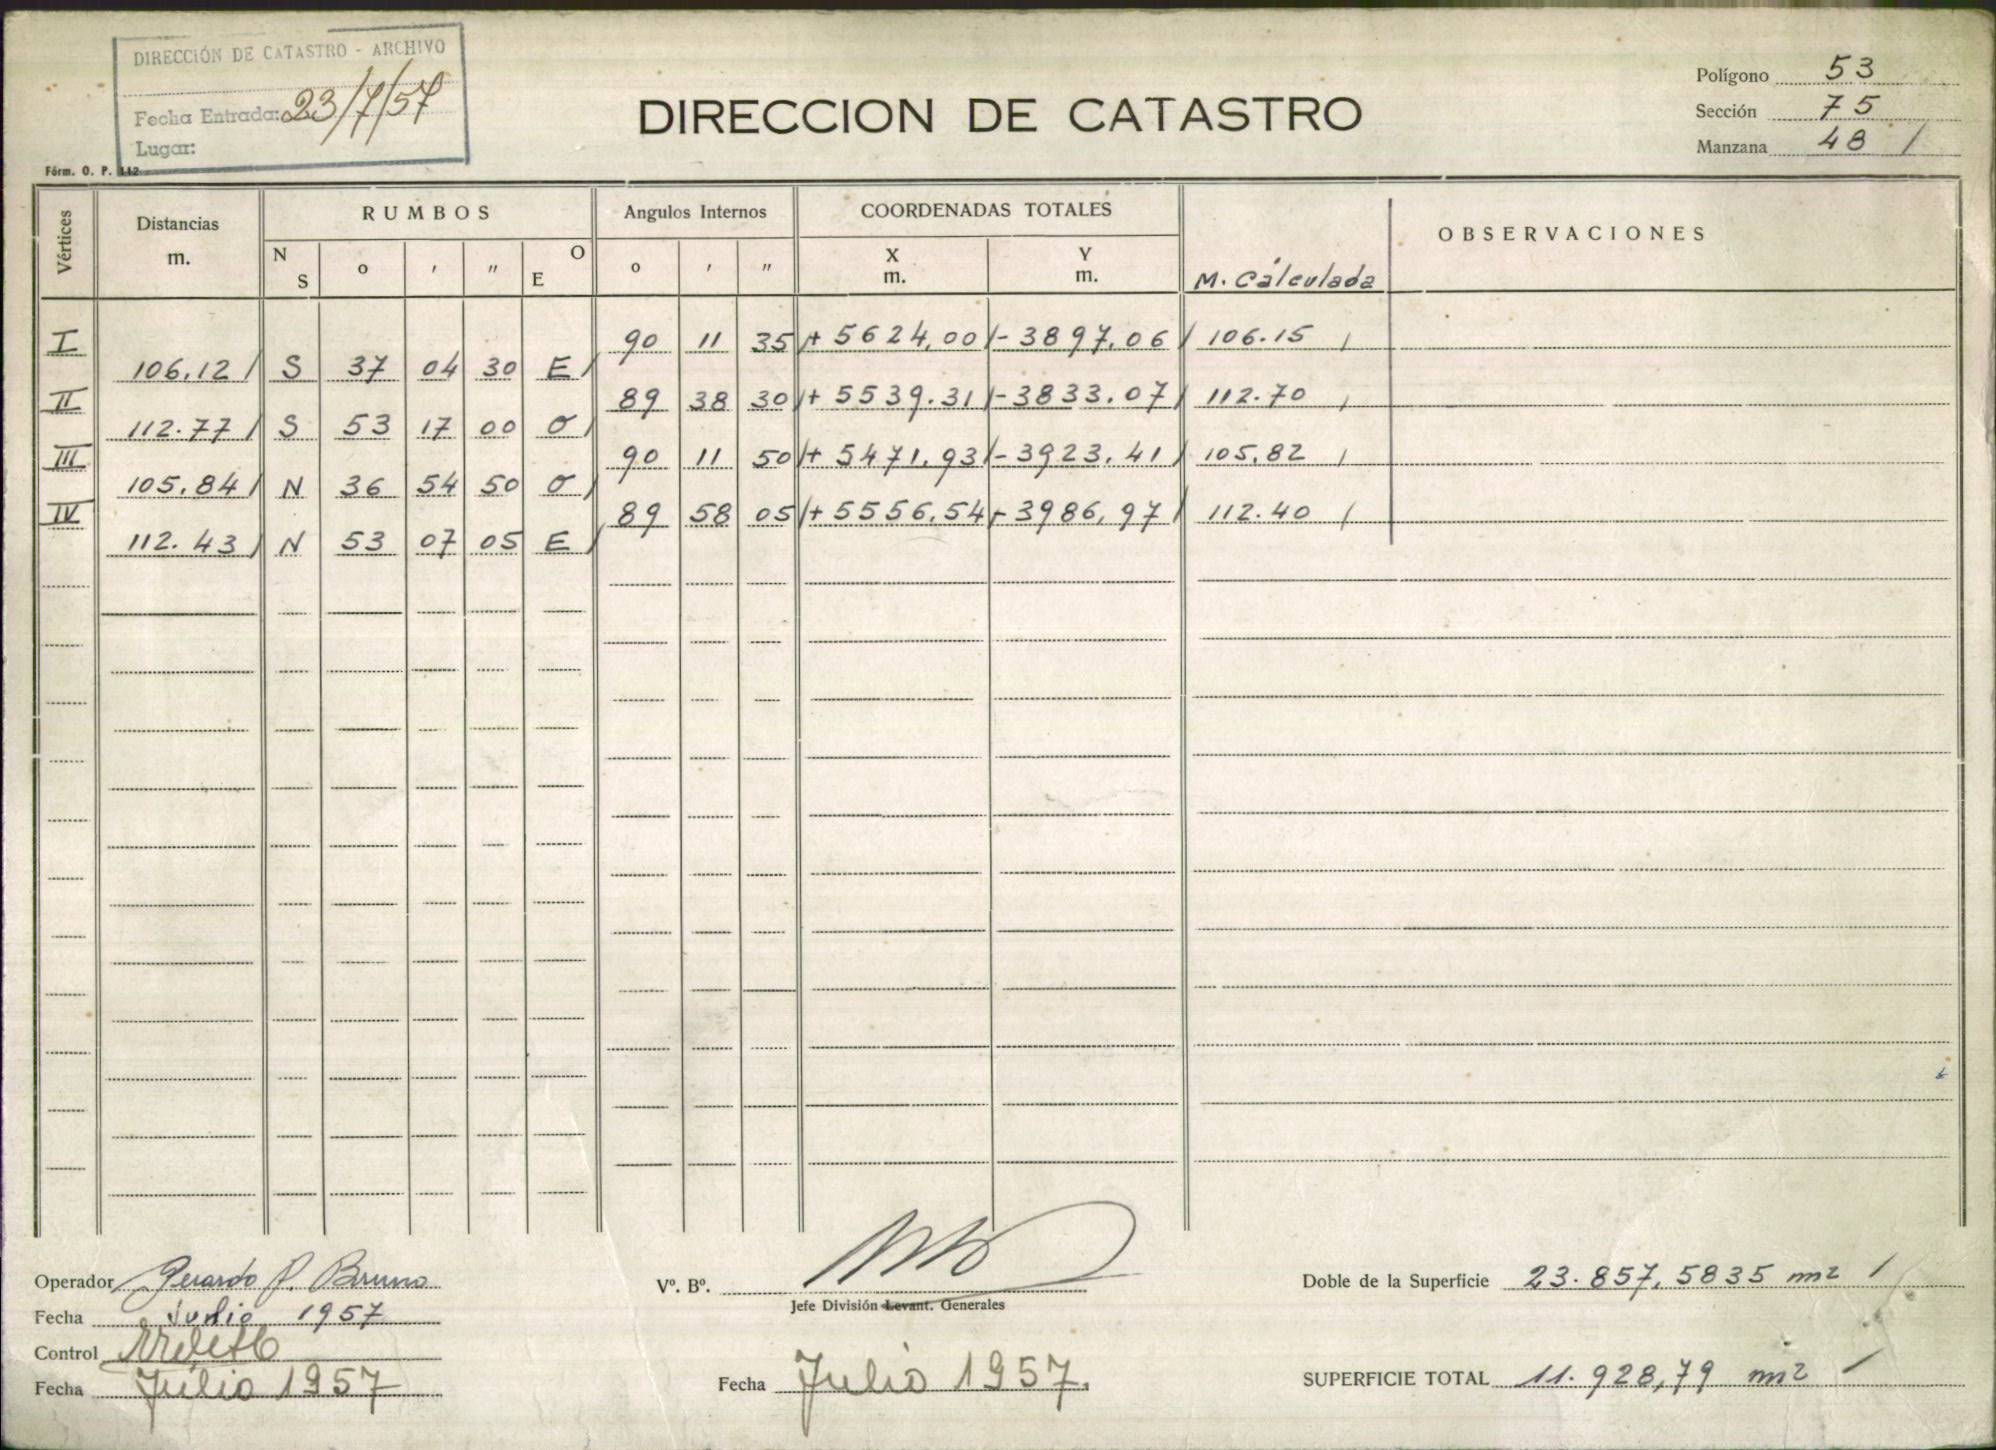 DIRECCIÓN DE CATASTRO - ARCHIVO
Fecha Entrada: 23/7/57
Lugar:
Fórm. O. P. 112
DIRECCION DE CATASTRO
Polígono 53
Sección 75
Manzana 48 /
Vértices Distancias m. RUMBOS Angulos Internos COORDENADAS TOTALES M. Cálculada OBSERVACIONES
N S o ' " O E o ' " X m. Y m.
I 90 11 35 + 5624,00 - 3897,06 106.15
106,12 S 37 04 30 E
II 89 38 30 + 5539.31 - 3833.07 112.70
112.77 S 53 17 00 O
III 90 11 50 + 5471,93 - 3923,41 105,82
105,84 N 36 54 50 O
IV 89 58 05 + 5556,54 - 3986,97 112.40
112.43 N 53 07 05 E
Operador Gerardo P. Bruno
Fecha Junio 1957
Control
Fecha Julio 1957
Vº. Bº.
Jefe División Levant. Generales
Fecha Julio 1957.
Doble de la Superficie 23.857,5835 m2 /
SUPERFICIE TOTAL 11.928,79 m2